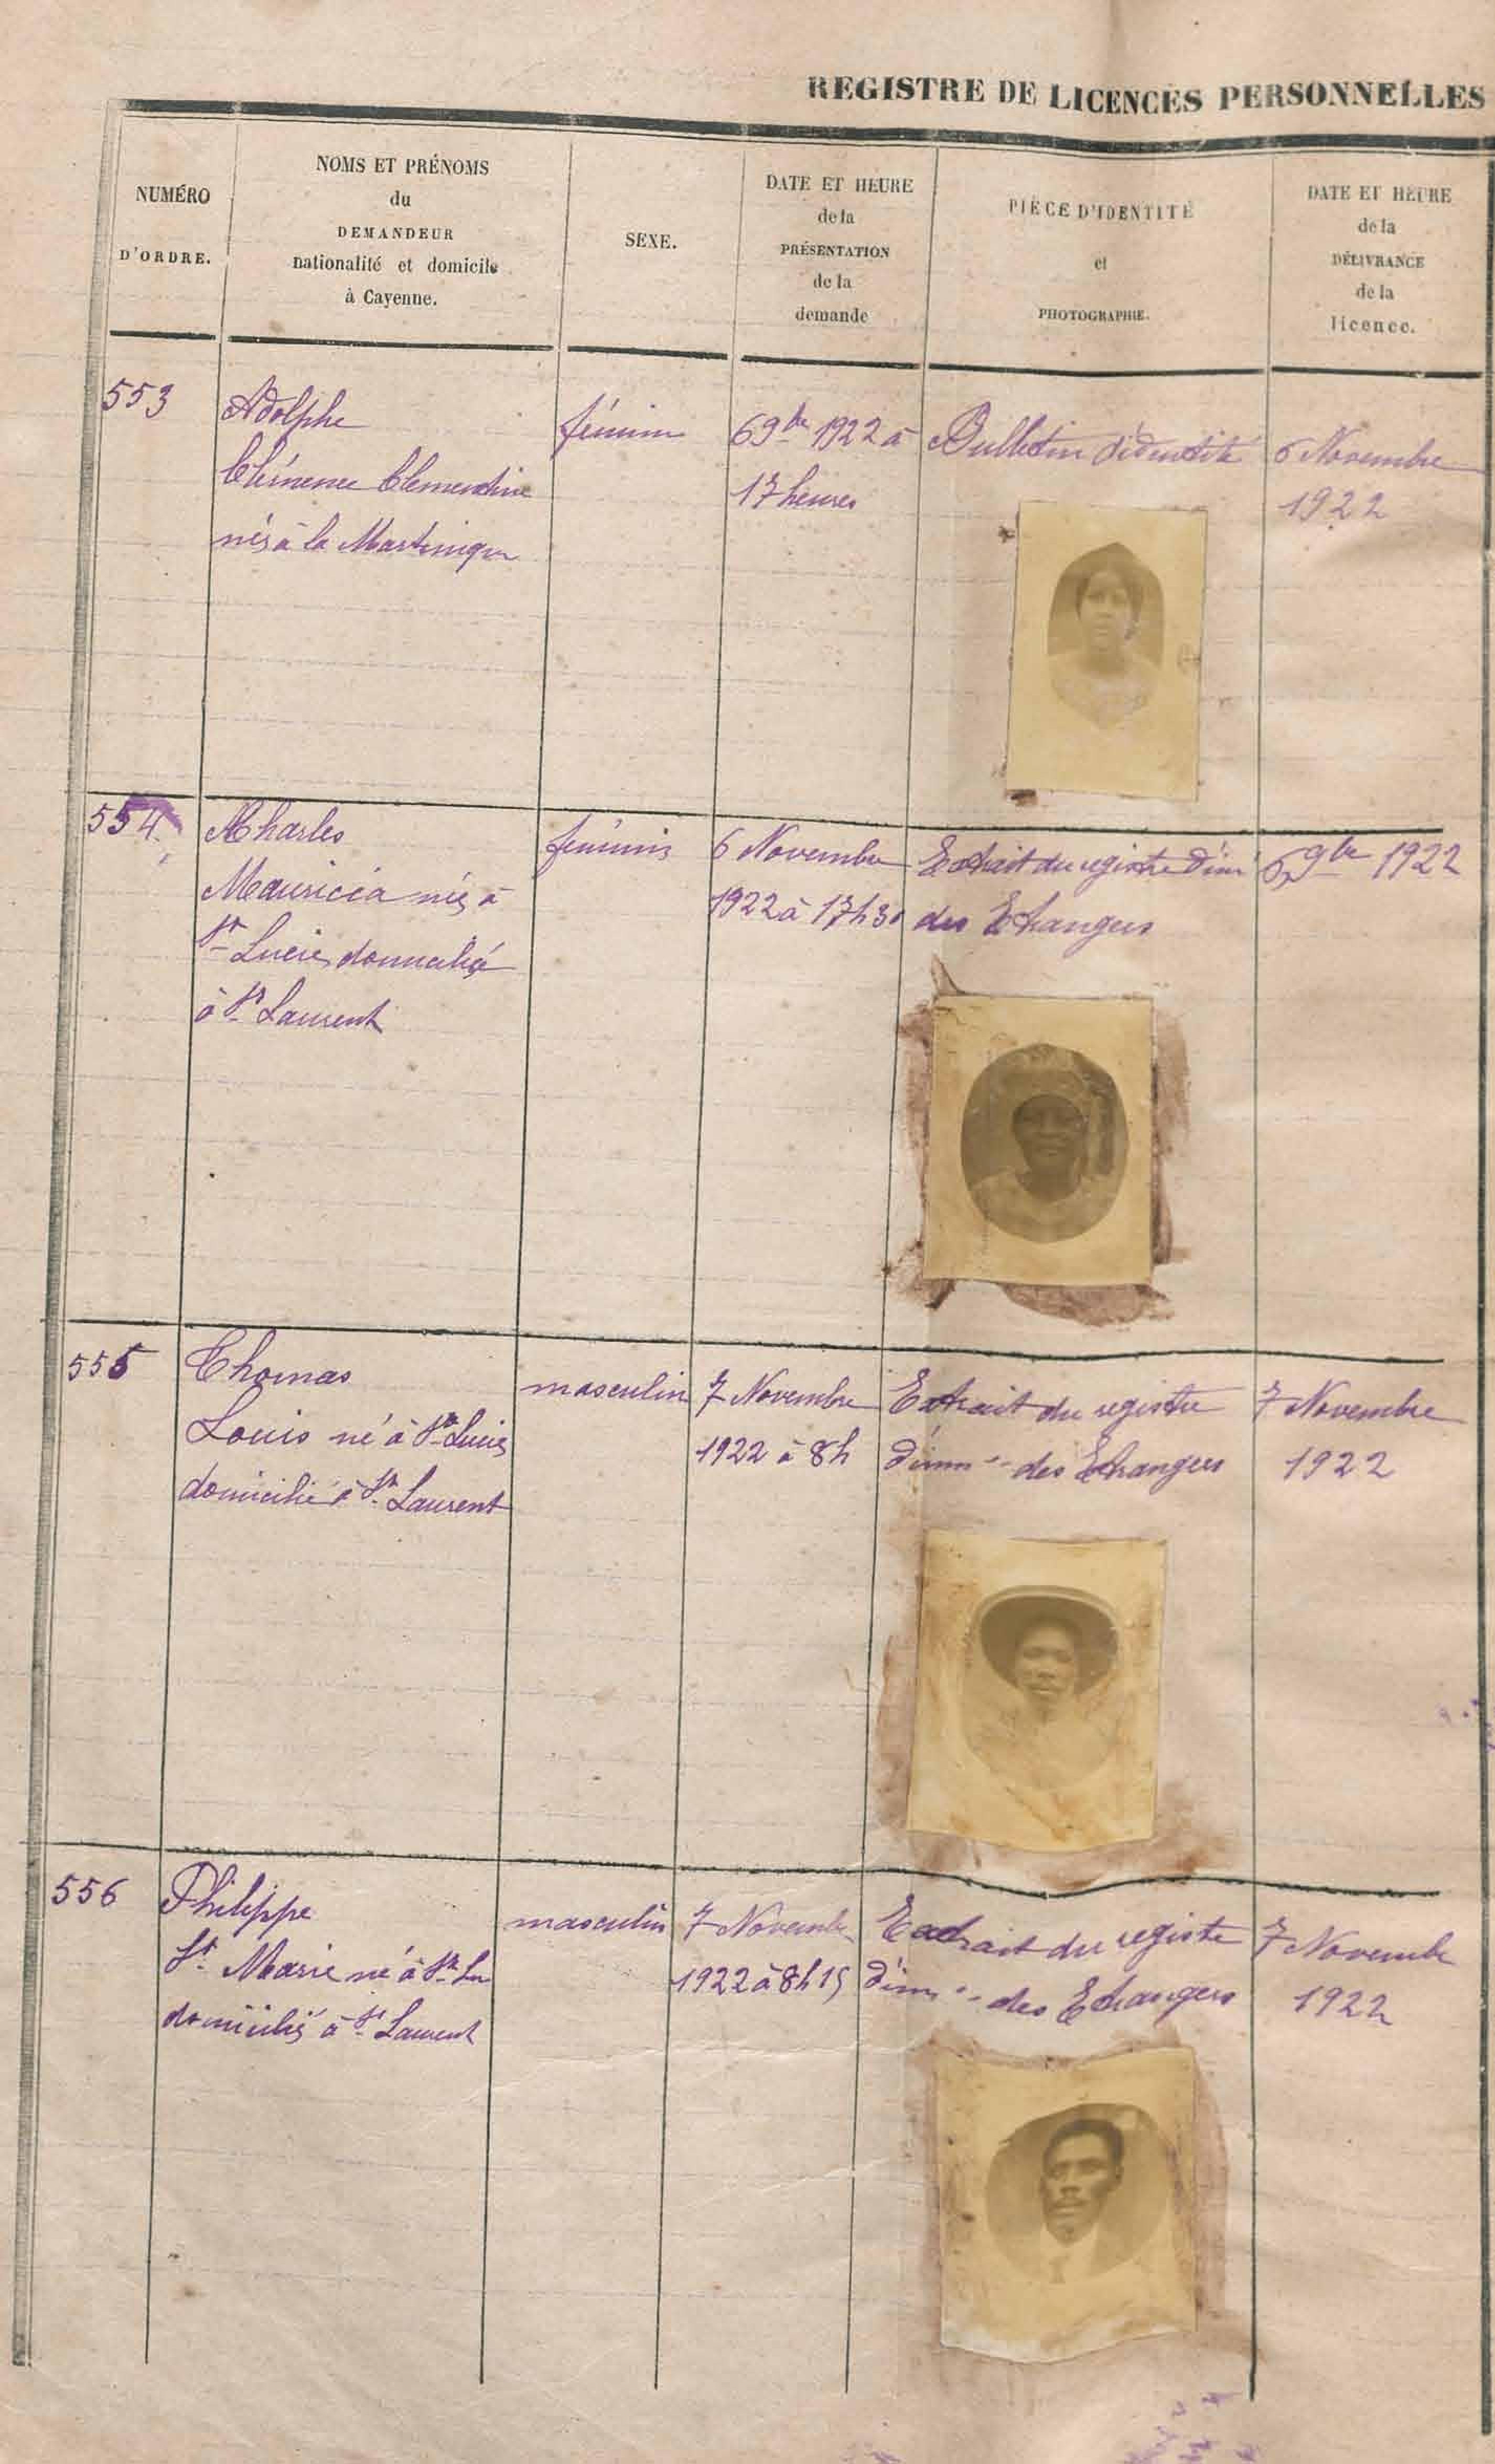 REGISTRE DE LICENCES PERSONNELLES
NUMÉRO
D'ORDRE.
NOMS ET PRÉNOMS
du
DEMANDEUR
nationalité et domicile
à Cayenne.
SEXE.
DATE ET HEURE
de la
PRÉSENTATION
de la
demande
PIÈCE D'IDENTITÉ
et
PHOTOGRAPHIE.
DATE ET HEURE
de la
DÉLIVRANCE
de la
licence.
553
Adolphe
Clémence Clementine
née à la Martinique
féminin
6 9bre 1922 à
17 heures
Bulletin d'identité
6 Novembre
1922
554
Charles
Mauricia née à
Ste Lucie domicilié
à St Laurent
féminin
6 Novembre
1922 à 17h30
Extrait du registre d'im
des Etrangers
6 9bre 1922
555
Thomas
Louis né à Ste Lucie
domicilié à St Laurent
masculin
7 Novembre
1922 à 8h
Extrait du registre
d'imm on des Etrangers
7 Novembre
1922
556
Philippe
St Marie né à Ste Lu
domicilié à St Laurent
masculin
7 Novembre
1922 à 8h15
Extrait du registre
d'imm on des Etrangers
7 Novembre
1922